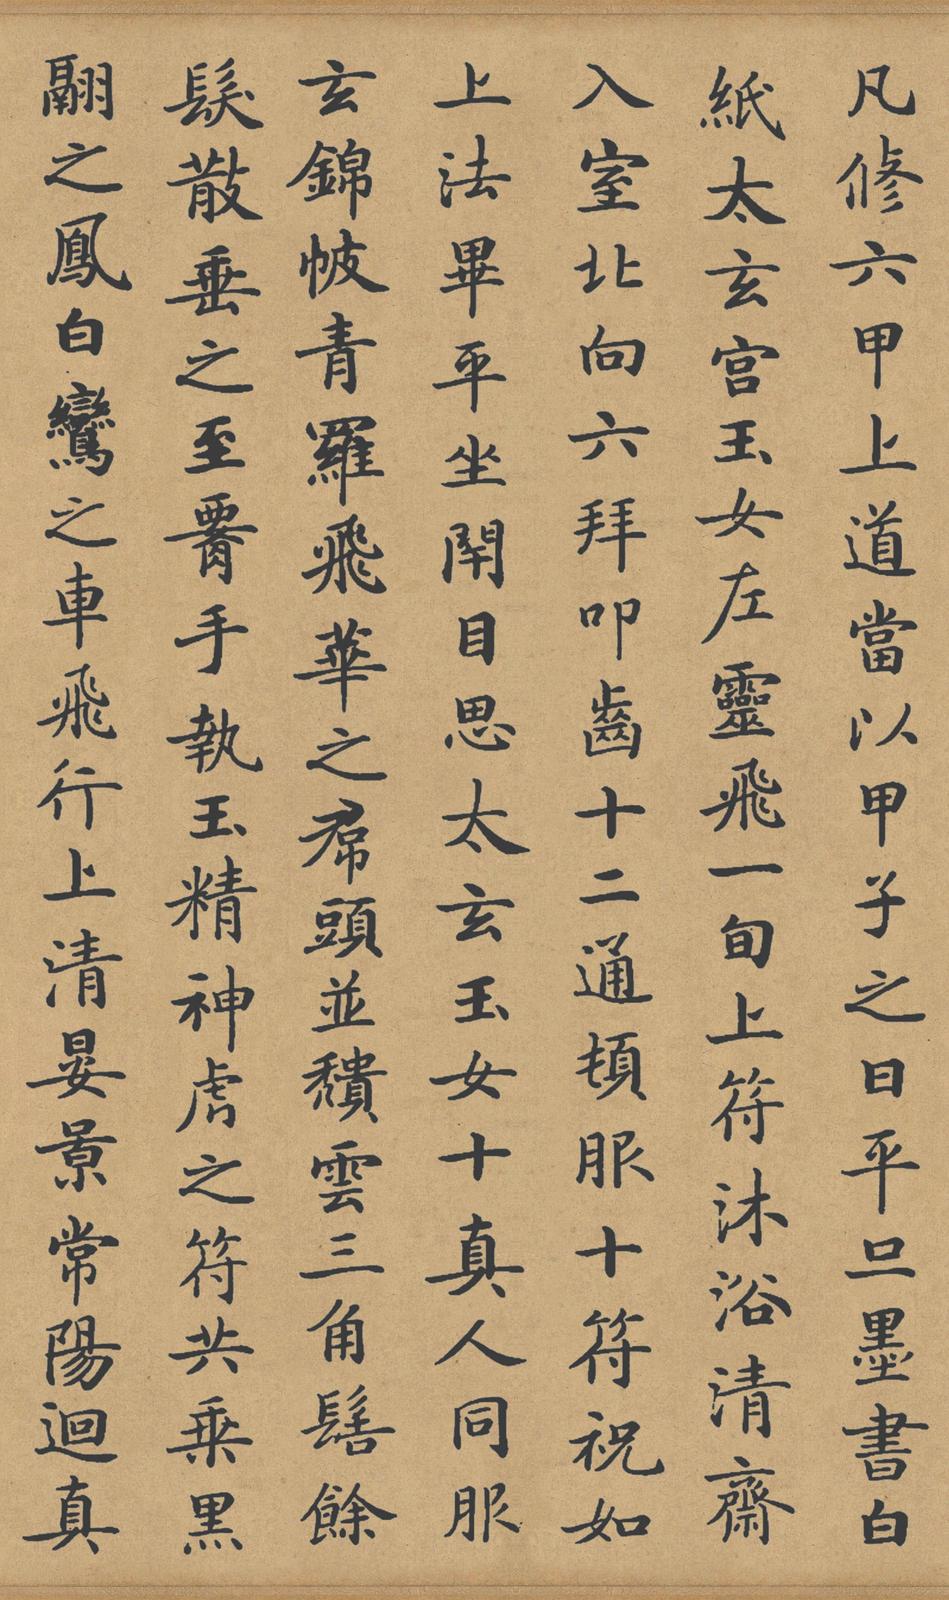 凡修六甲上道當以甲子之日平旦墨書白
紙太玄宮玉女左靈飛一旬上符沐浴清齋
入室北向六拜叩齒十二通頓服十符祝如
上法畢平坐閇目思太玄玉女十真人同服
玄錦帔青羅飛華之帬頭並穨雲三角髻餘
髮散垂之至䙴手執玉精神虎之符共乗黒
翮之鳳白鸞之車飛行上清晏景常陽迴真